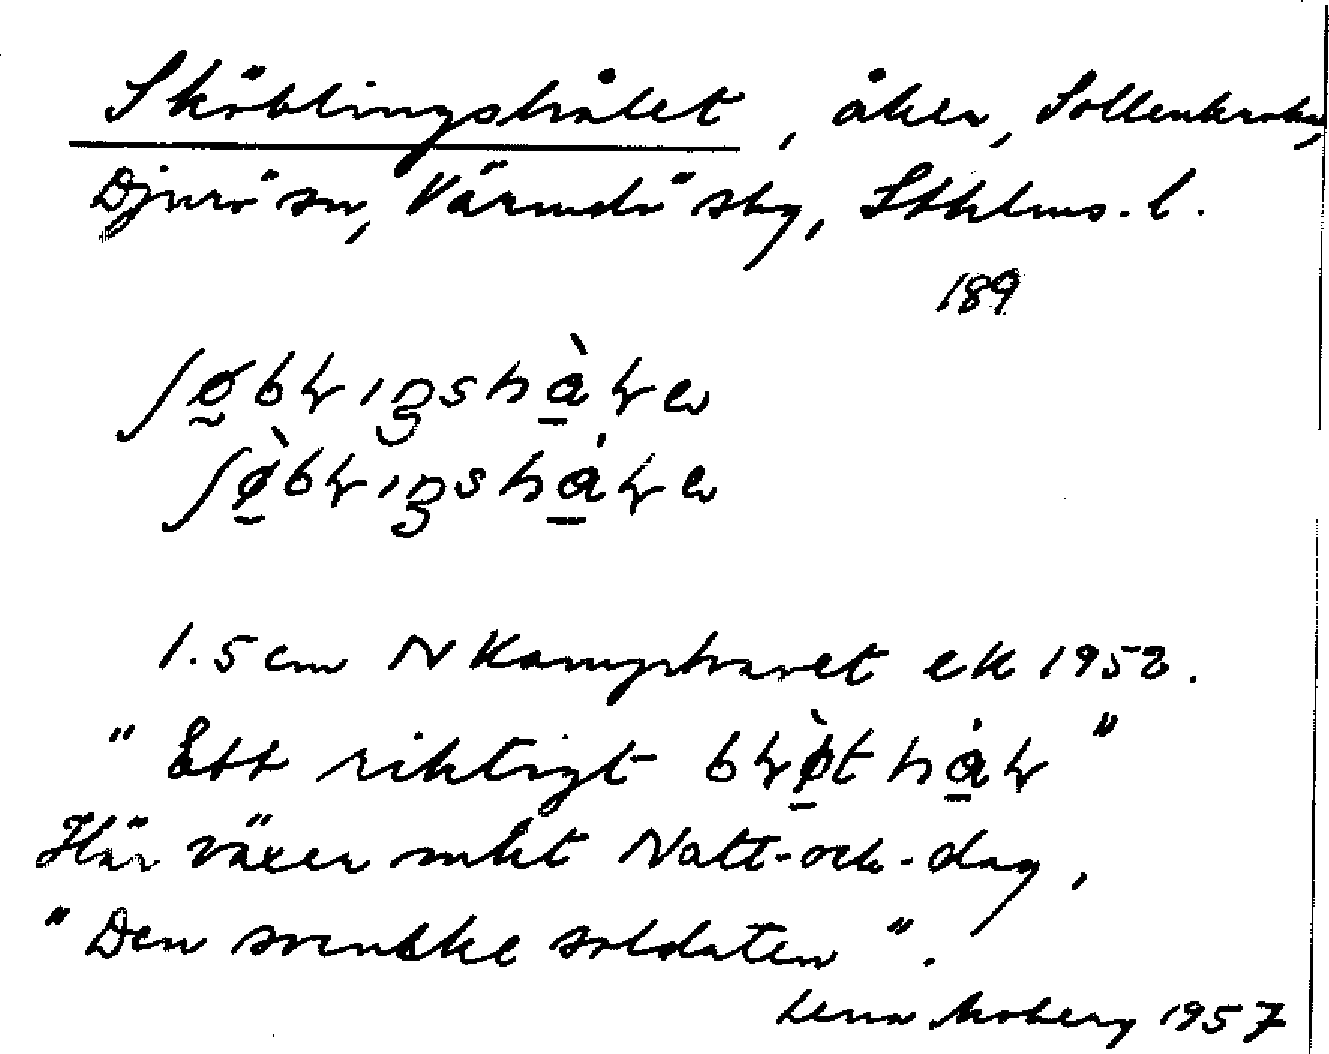 Sköblingshålet, åker, Sollenkroka,
Djurö sn, Värmdö sbg, Sthlms. l.
189
ʃøbłıŋshàłe
ʃø̀błıŋshåłe
1.5 cm N Kamphavet ek 1952.
"Ett riktigt błø̀t håł"
Här växer mkt Natt-och-dag,
"Den svenske soldaten".
Lena Moberg 1957